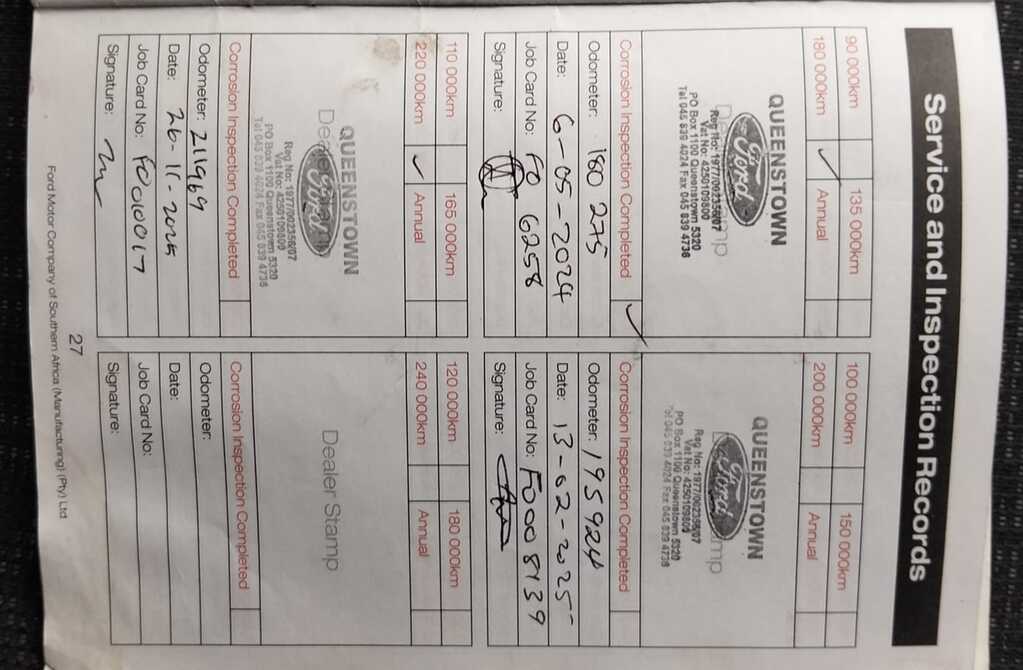 Service and Inspection Records
90 000km 135 000km
180 000km ✓ Annual
Dealer Stamp
QUEENSTOWN
Ford
Reg No: 1977/092356/07
Vat No: 4250109800
PO Box 1100 Queenstown 5320
Tel 045 839 4024 Fax 045 839 4738
Corrosion Inspection Completed ✓
Odometer: 180 275
Date: 6-05-2024
Job Card No: F0 6258
Signature:
100 000km 150 000km
200 000km Annual
QUEENSTOWN
Ford
Reg No: 1977/092356/07
Vat No: 4250109800
PO Box 1100 Queenstown 5320
Tel 045 839 4024 Fax 045 839 4738
Corrosion Inspection Completed
Odometer: 195924
Date: 13-02-2025
Job Card No: F0008139
Signature:
110 000km 165 000km
220 000km ✓ Annual
QUEENSTOWN
Dealer Stamp
Ford
Reg No: 1977/092356/07
Vat No: 4250109800
PO Box 1100 Queenstown 5320
Tel 045 839 4024 Fax 045 839 4738
Corrosion Inspection Completed
Odometer: 211969
Date: 26-11-2025
Job Card No: F0010017
Signature:
120 000km 180 000km
240 000km Annual
Dealer Stamp
Corrosion Inspection Completed
Odometer:
Date:
Job Card No:
Signature:
27
Ford Motor Company of Southern Africa (Manufacturing) (Pty) Ltd